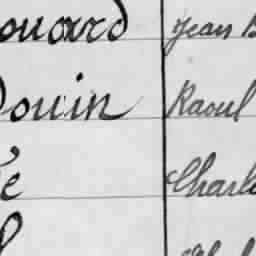 ouard Jean B
douin Raoul
é Charle